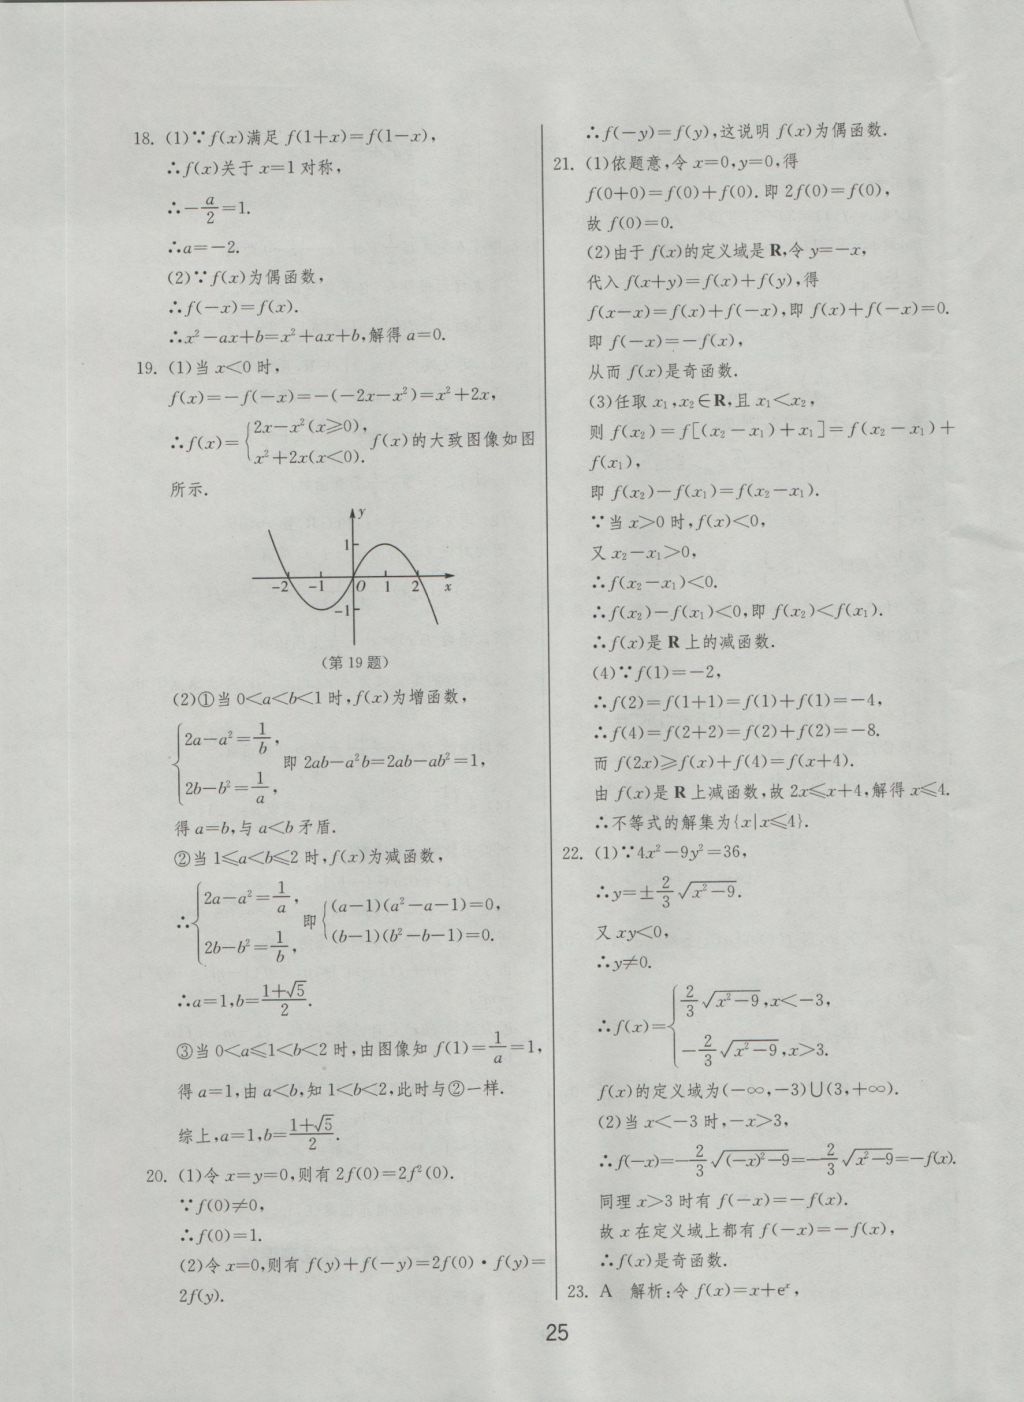 18. (1)∵f(x)满足 f(1+x)=f(1-x),
∴f(x)关于 x=1 对称,
∴-a/2=1.
∴a=-2.
(2)∵f(x)为偶函数,
∴f(-x)=f(x).
∴x²-ax+b=x²+ax+b,解得 a=0.
19. (1)当 x<0 时,
f(x)=-f(-x)=-(-2x-x²)=x²+2x,
∴f(x)={2x-x²(x⩾0), x²+2x(x<0). f(x)的大致图像如图
所示.
y
1
-2 -1 O 1 2 x
-1
(第 19 题)
(2)①当 0<a<b<1 时,f(x)为增函数,
{2a-a²=1/b, 2b-b²=1/a, 即 2ab-a²b=2ab-ab²=1,
得 a=b,与 a<b 矛盾.
②当 1⩽a<b⩽2 时,f(x)为减函数,
∴{2a-a²=1/a, 2b-b²=1/b, 即{(a-1)(a²-a-1)=0, (b-1)(b²-b-1)=0.
∴a=1,b=(1+√5)/2.
③当 0<a⩽1<b<2 时,由图像知 f(1)=1/a=1,
得 a=1,由 a<b,知 1<b<2,此时与②一样.
综上,a=1,b=(1+√5)/2.
20. (1)令 x=y=0,则有 2f(0)=2f²(0).
∵f(0)≠0,
∴f(0)=1.
(2)令 x=0,则有 f(y)+f(-y)=2f(0)·f(y)=
2f(y).
∴f(-y)=f(y),这说明 f(x)为偶函数.
21. (1)依题意,令 x=0,y=0,得
f(0+0)=f(0)+f(0).即 2f(0)=f(0),
故 f(0)=0.
(2)由于 f(x)的定义域是 R,令 y=-x,
代入 f(x+y)=f(x)+f(y),得
f(x-x)=f(x)+f(-x),即 f(x)+f(-x)=0.
即 f(-x)=-f(x),
从而 f(x)是奇函数.
(3)任取 x₁,x₂∈R,且 x₁<x₂,
则 f(x₂)=f[(x₂-x₁)+x₁]=f(x₂-x₁)+
f(x₁),
即 f(x₂)-f(x₁)=f(x₂-x₁).
∵当 x>0 时,f(x)<0,
又 x₂-x₁>0,
∴f(x₂-x₁)<0.
∴f(x₂)-f(x₁)<0,即 f(x₂)<f(x₁).
∴f(x)是 R 上的减函数.
(4)∵f(1)=-2,
∴f(2)=f(1+1)=f(1)+f(1)=-4,
∴f(4)=f(2+2)=f(2)+f(2)=-8.
而 f(2x)⩾f(x)+f(4)=f(x+4).
由 f(x)是 R 上减函数,故 2x⩽x+4,解得 x⩽4.
∴不等式的解集为{x|x⩽4}.
22. (1)∵4x²-9y²=36,
∴y=±2/3√(x²-9).
又 xy<0,
∴y≠0.
∴f(x)={2/3√(x²-9),x<-3, -2/3√(x²-9),x>3.
f(x)的定义域为(-∞,-3)∪(3,+∞).
(2)当 x<-3 时,-x>3,
∴f(-x)=-2/3√((-x)²-9)=-2/3√(x²-9)=-f(x).
同理 x>3 时有 f(-x)=-f(x).
故 x 在定义域上都有 f(-x)=-f(x),
∴f(x)是奇函数.
23. A 解析:令 f(x)=x+eˣ,
25